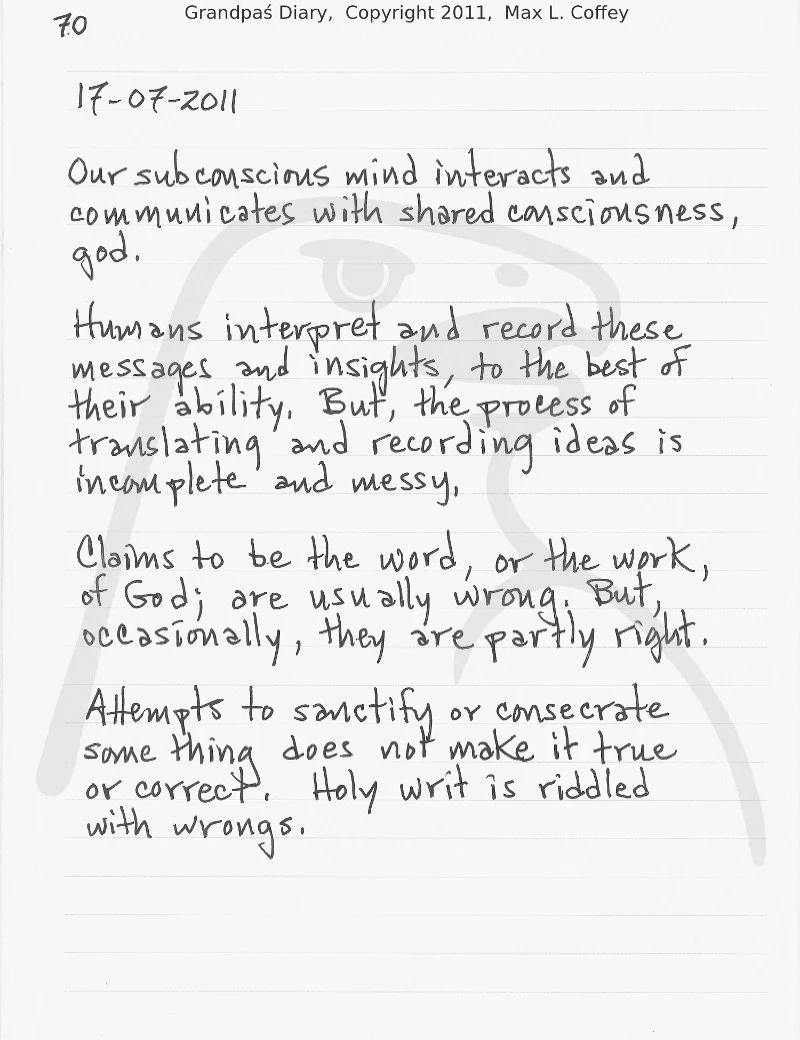 Grandpaś Diary, Copyright 2011, Max L. Coffey
70
17-07-2011
Our subconscious mind interacts and
communicates with shared consciousness,
god.
Humans interpret and record these
messages and insights, to the best of
their ability. But, the process of
translating and recording ideas is
incomplete and messy.
Claims to be the word, or the work,
of God; are usually wrong. But,
occasionally, they are partly right.
Attempts to sanctify or consecrate
some thing does not make it true
or correct. Holy writ is riddled
with wrongs.